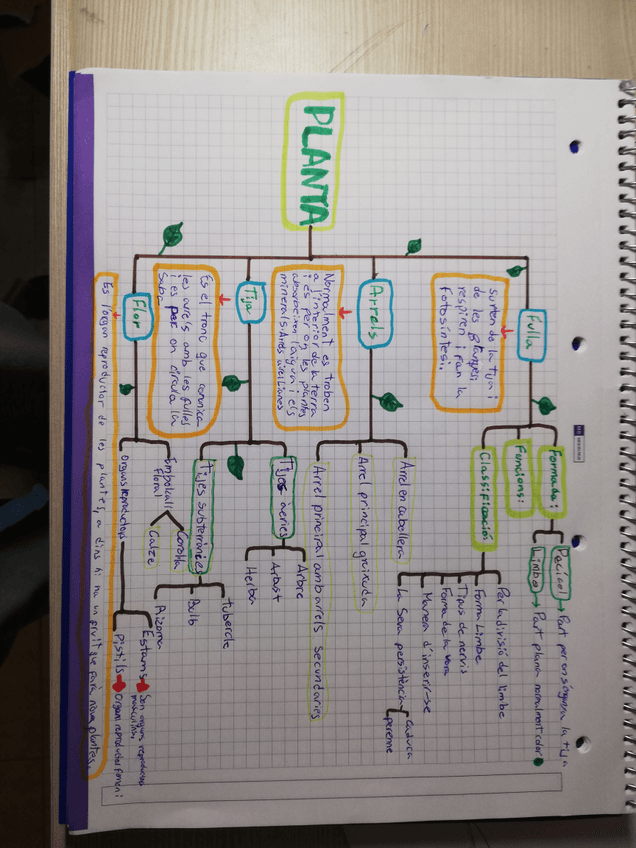 PLANTA
Fulla
surten de la tija i
de les branques,
respiren i fan la
fotosíntesi,
Formada:
Pecíol → Part per on s'agrega la tija
Limbe → Part plana normalment color
Foncions:
Classificación
Par la divisió del limbe
Forma Limbe
Tipus de nervis
Forma de la vora
Manera d'inserir-se
La Seva persistència
Caduca
perenne
Arrels
Normalment es troben
a l'interior de la terra
i és per on les plantes
absorbeixen l'aigua i els
minerals.
Arrel en cabellera
Arrel principal
Arrel principal amb arrels secundaries
Tija
Es el tronc que comunica
les arrels amb les fulles
i es per on circula la
Saba
Tijes aeries
Arbre
Arbust
Herba
Tijes subterrànies
Tubercle
Bulb
Rizoma
Flor
Es l'organ reproductor de les plantes, a dins hi ha un que farà nova plantes.
Embolcall
floral
Corol·la
Calze
Organs reproductors
Estams → Son organs reproductors
masculins
Pistils → Organs reproductors femení